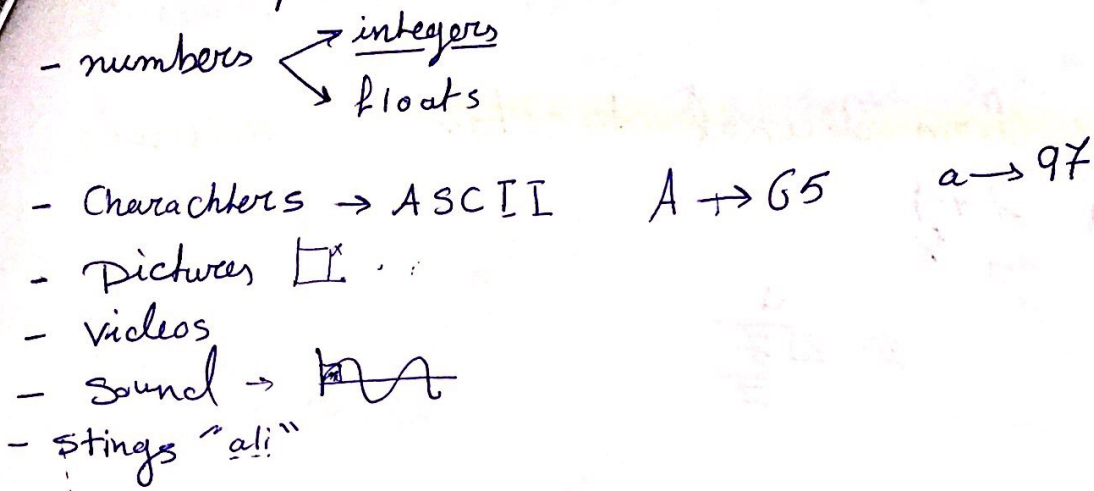 - numbers → integers
→ floats
- Charachters → ASCII A → 65 a → 97
- Pictures
- videos
- Sound →
- stings "ali"